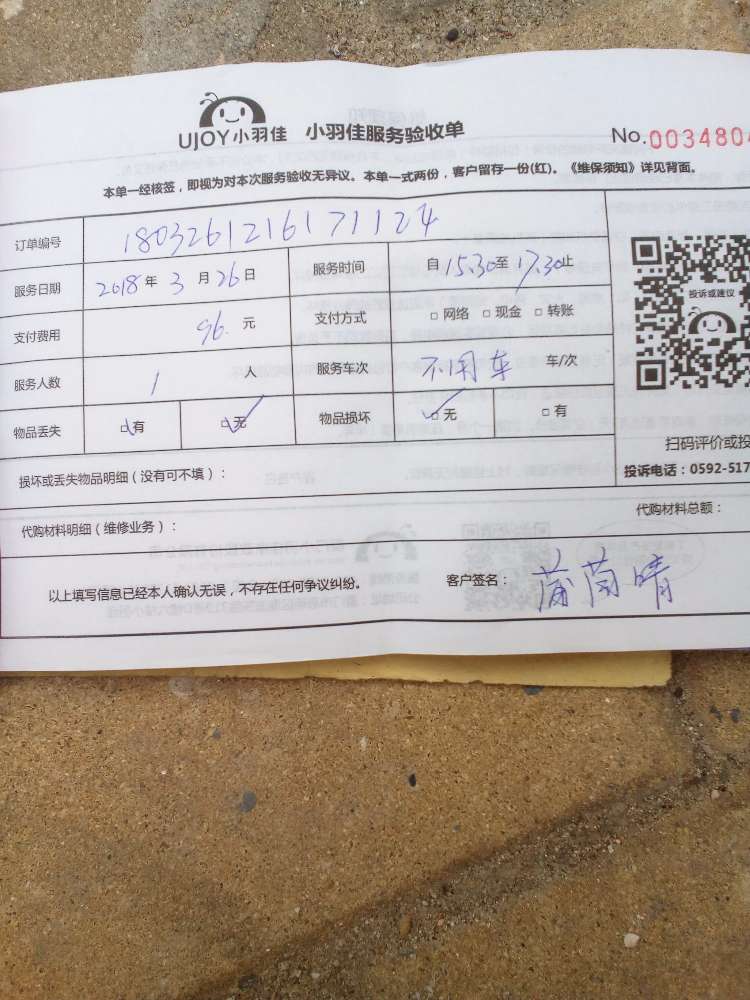 UJOY小羽佳 小羽佳服务验收单
No.0034804
本单一经核签，即视为对本次服务验收无异议。本单一式两份，客户留存一份(红)。《维保须知》详见背面。
订单编号 1803261216171124
服务日期 2018年3月26日 服务时间 自15.30至17.30止
支付费用 96.元 支付方式 □网络 □现金 □转账
服务人数 1 人 服务车次 不用车 车/次
物品丢失 □有 □无 物品损坏 □无 □有
投诉或建议
扫码评价或投
投诉电话：0592-517
损坏或丢失物品明细（没有可不填）：
代购材料明细（维修业务）： 代购材料总额：
以上填写信息已经本人确认无误，不存在任何争议纠纷。 客户签名： 蒲茵晴